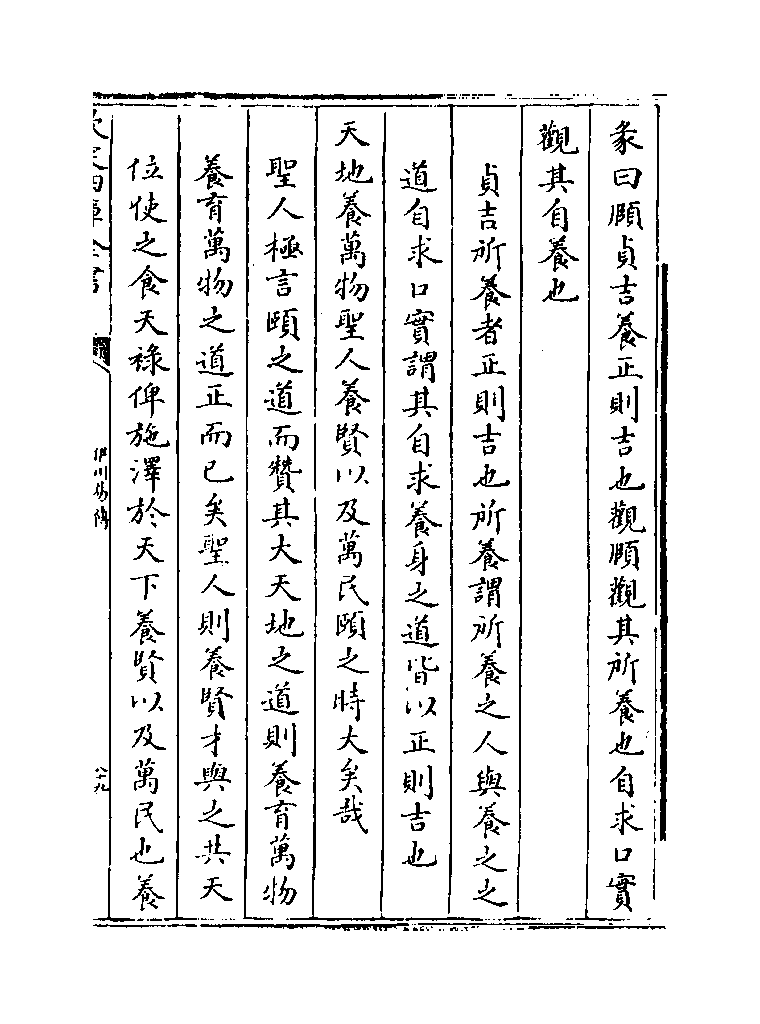 彖曰頤貞吉養正則吉也觀頤觀其所養也自求口實
觀其自養也
貞吉所養者正則吉也所養謂所養之人與養之之
道自求口實謂其自求養身之道皆以正則吉也
天地養萬物聖人養賢以及萬民頤之時大矣哉
聖人極言頤之道而贊其大天地之道則養育萬物
養育萬物之道正而已矣聖人則養賢才與之共天
位使之食天祿俾施澤於天下養賢以及萬民也養
欽定四庫全書
伊川易傳
八十九